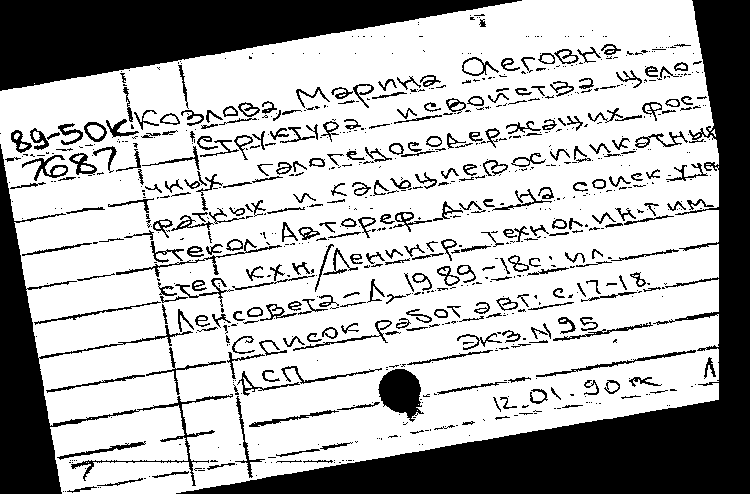 89-50К
7687
Козлова, Марина Олеговна
Структура и свойства щело-
чных галогеносодержащих фос-
фатных и кальциевосиликатных
стекол: Автореф. дис. на соиск. учен
степ. к.х.н. / Ленингр. технол. ин-т им.
Ленсовета – Л, 1989 – 18с: ил.
Список работ авт: с. 17-18
ДСП Экз. N 95
12.01.90ж Л
7